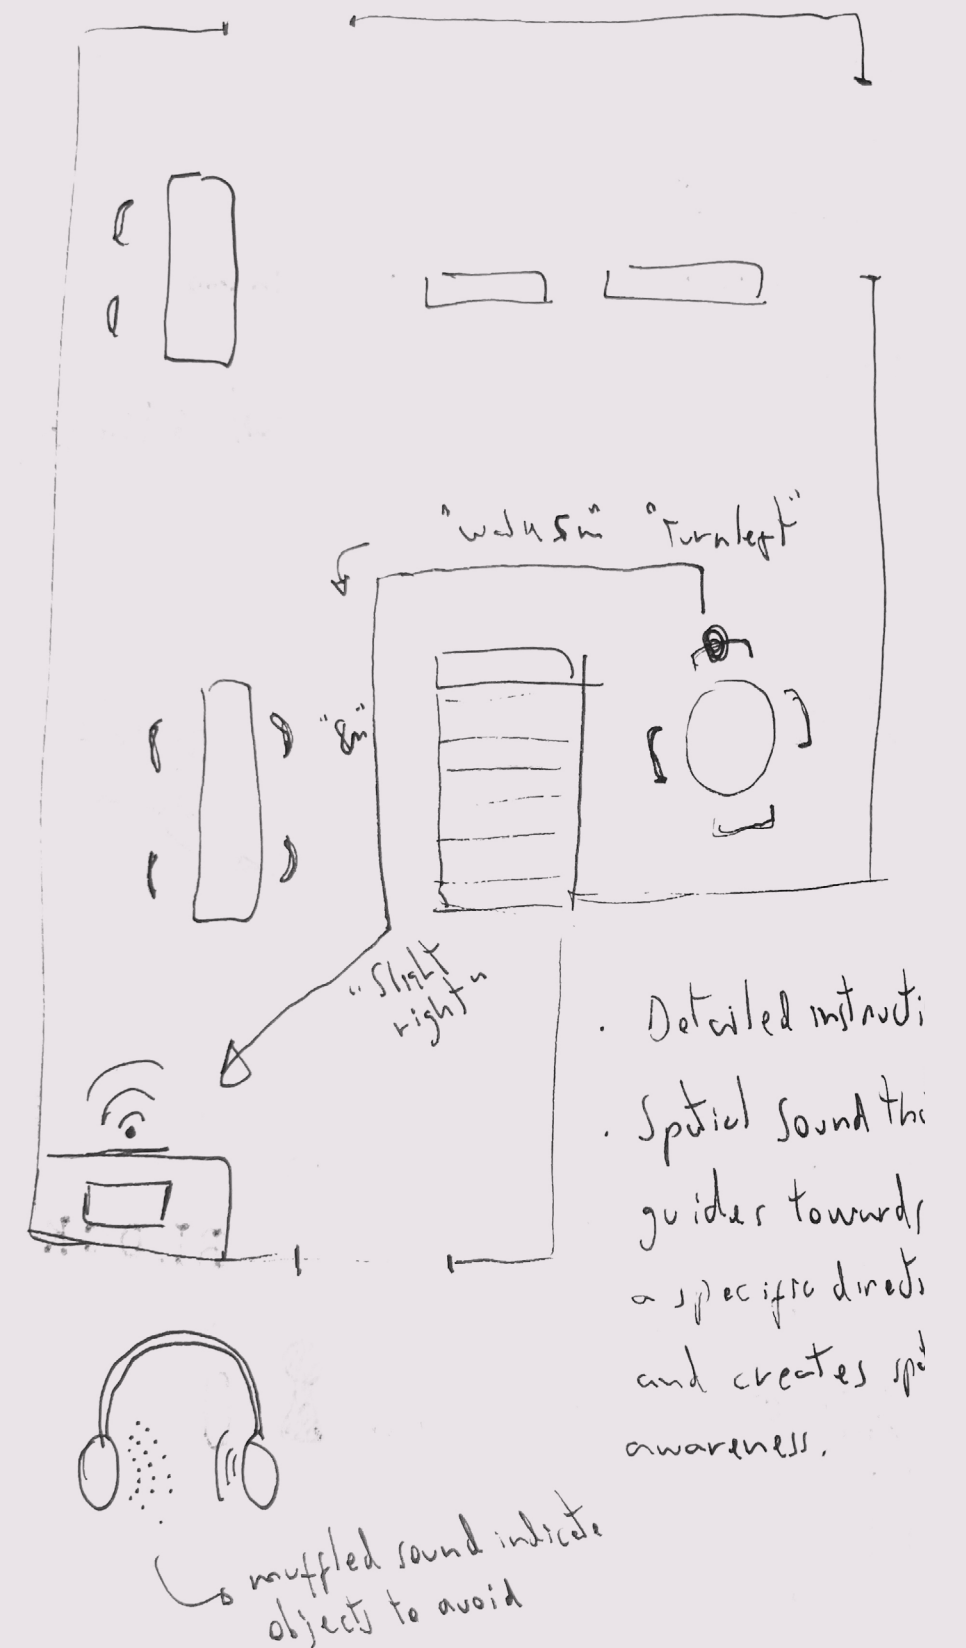 "walk 5m" "Turn left"
"8m"
"Slight
right"
. Detailed instructi
. Spatial sound tha
guides towards
a specific directi
and creates spa
awareness.
muffled sound indicate
objects to avoid